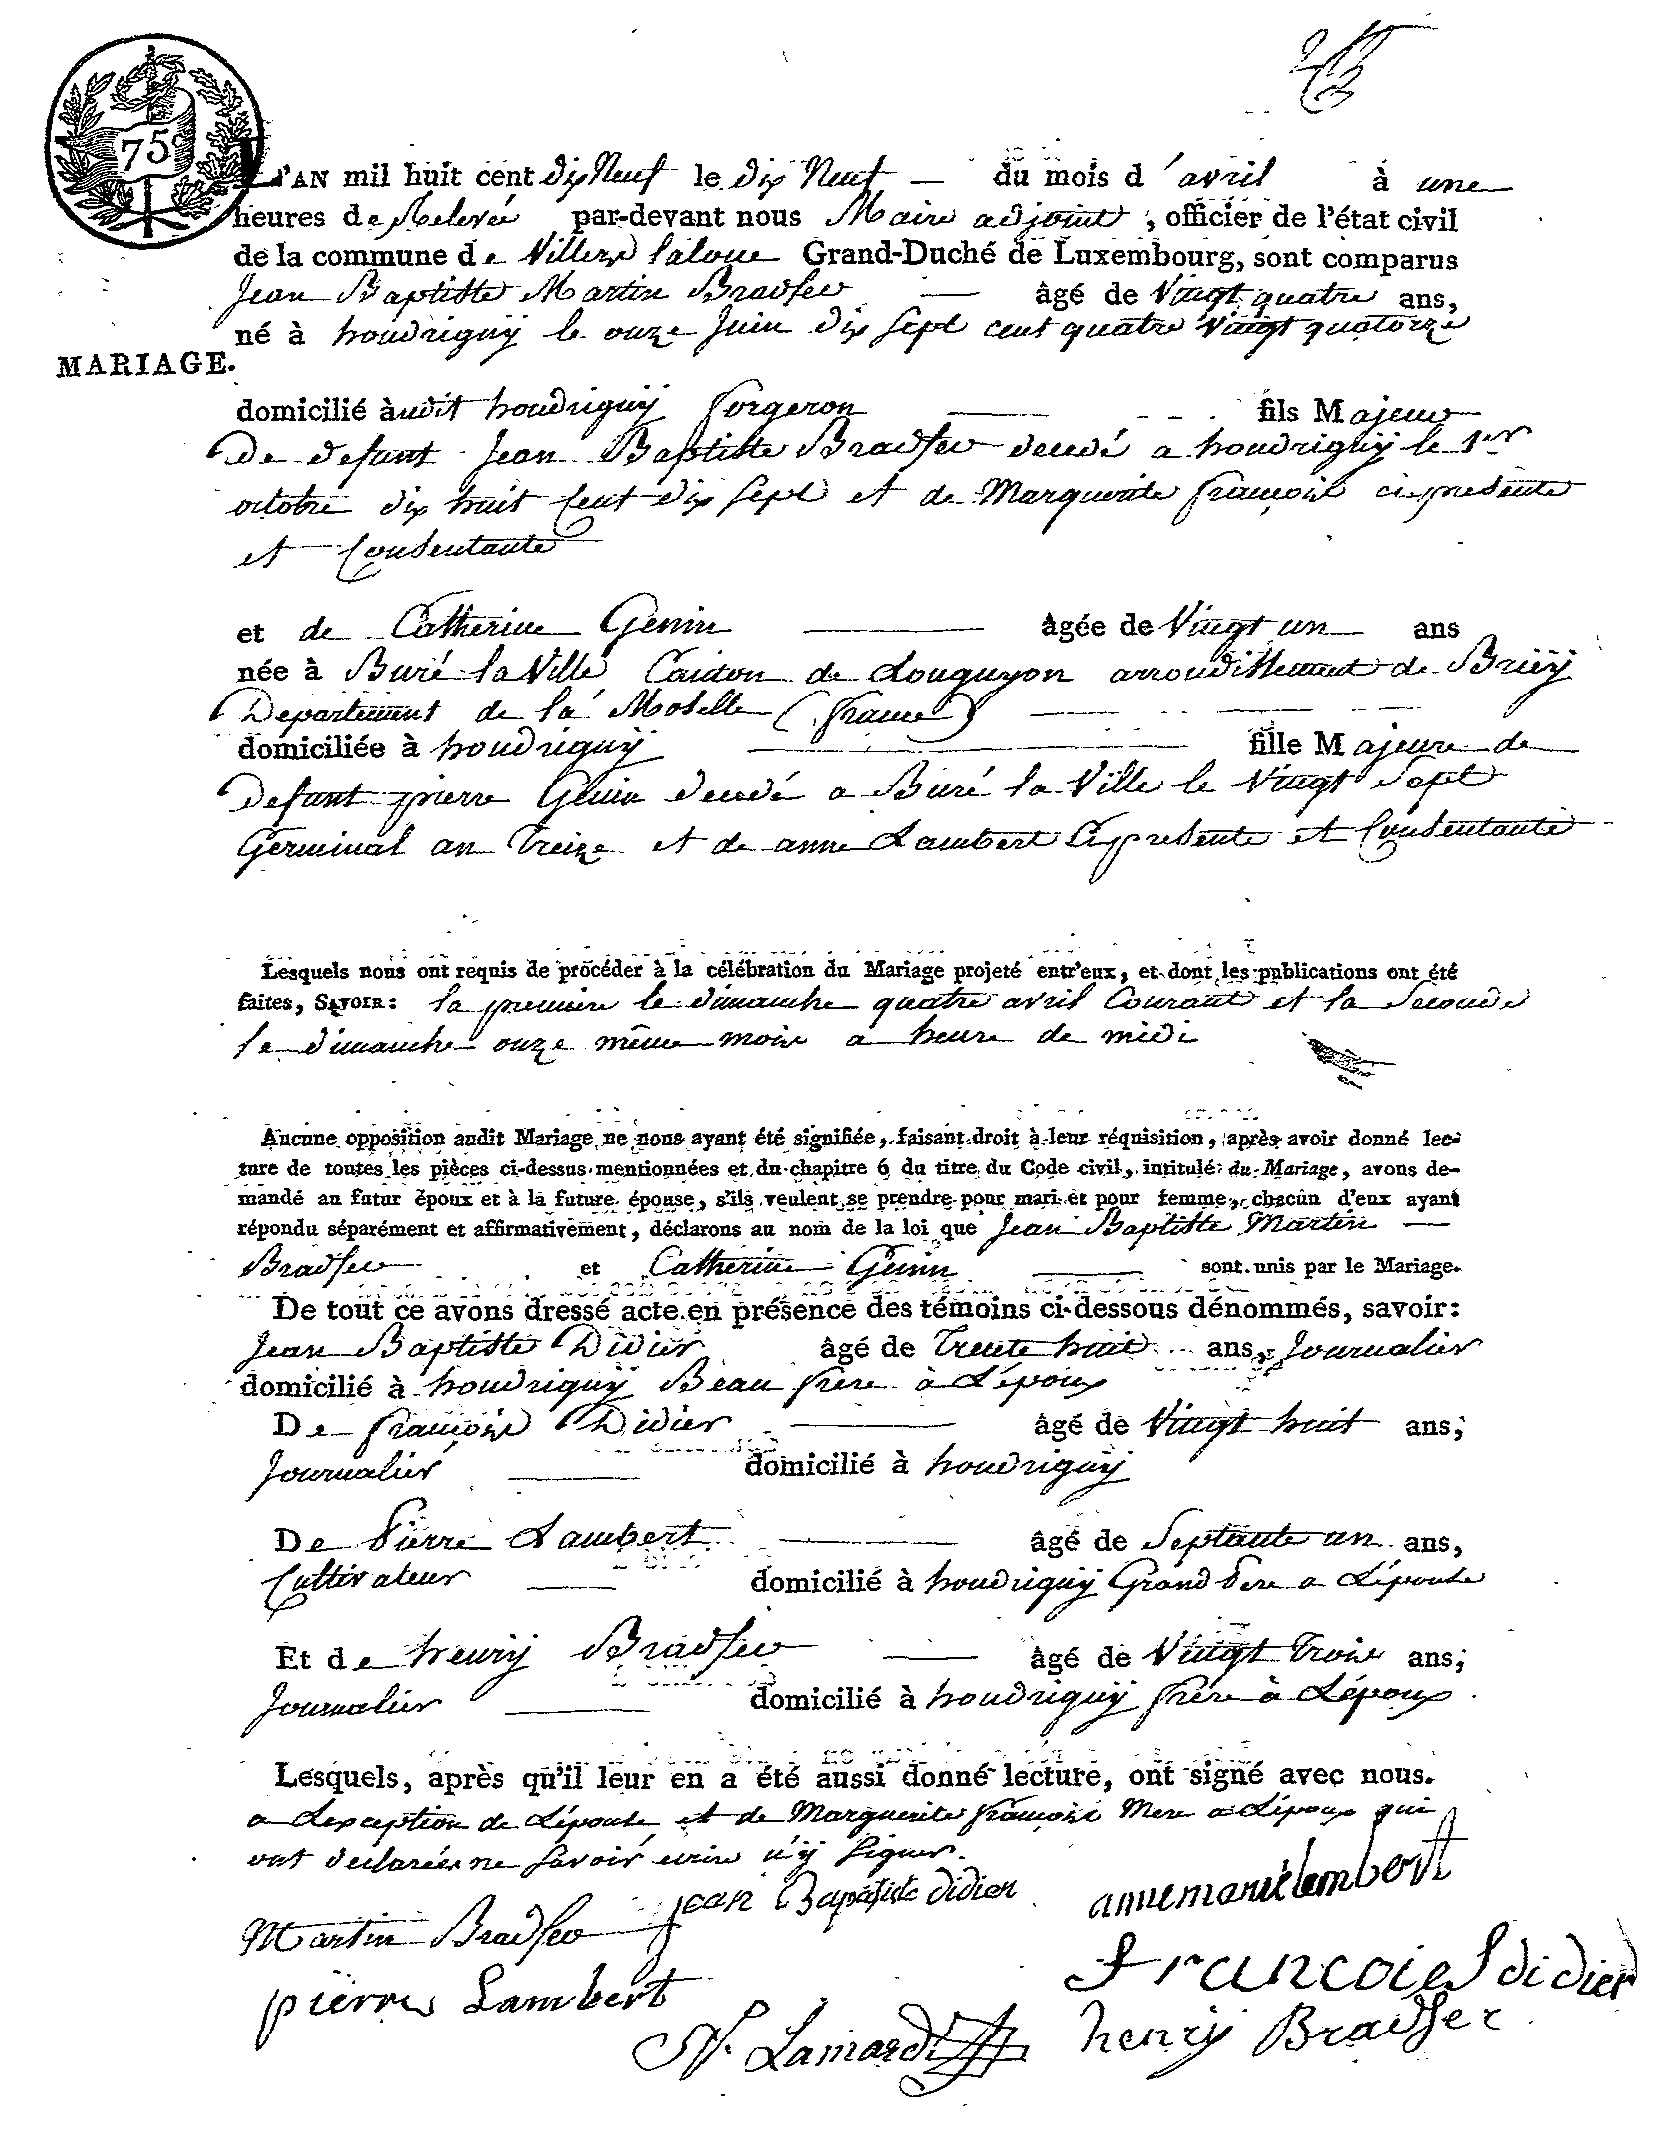 75
L'AN mil huit cent dix Neuf le dix Neuf du mois d'avril à une
heures de Relevée par-devant nous Maire adjoint, officier de l'état civil
de la commune de Villers laloue Grand-Duché de Luxembourg, sont comparus
Jean Baptiste Martin Bradfer âgé de Vingt quatre ans,
né à houdriguy le onze Juin dix sept cent quatre Vingt quatorze
MARIAGE.
domicilié àudit houdriguy forgeron fils Majeur
De defunt Jean Baptiste Bradfer decedé a houdriguy le 1er
octobre dix huit Cent dix sept et de Marguerite françoise ci presente
et Consentante
et de Catherine Genin âgée de Vingt un ans
née à Buré la Ville Canton de Longuyon arrondissement de Briey
Departement de la Moselle (france)
domiciliée à houdriguy fille Majeure de
Defunt pierre Genin decedé a Buré la Ville le Vingt Sept
Germinal an Treize et de anne Lambert Ci presente et Consentante
Lesquels nous ont requis de procéder à la célébration du Mariage projeté entr'eux, et dont les publications ont été
faites, SAVOIR: la premiere le dimanche quatre avril Courant et la Seconde
le dimanche onze même mois a heure de midi
Aucune opposition audit Mariage ne nous ayant été signifiée, faisant droit à leur réquisition, après avoir donné lec-
ture de toutes les pièces ci-dessus mentionnées et du chapitre 6 du titre du Code civil, intitulé: du Mariage, avons de-
mandé au futur époux et à la future épouse, s'ils veulent se prendre pour mari et pour femme, chacun d'eux ayant
répondu séparément et affirmativement, déclarons au nom de la loi que Jean Baptiste Martin
Bradfer et Catherine Genin sont unis par le Mariage.
De tout ce avons dressé acte en présence des témoins ci-dessous dénommés, savoir:
Jean Baptiste Didier âgé de Trente huit ans, Journalier
domicilié à houdriguy Beau frere à L'époux
De françois Didier âgé de Vingt huit ans;
Journalier domicilié à houdriguy
De Pierre Lambert âgé de Septante un ans,
Cultivateur domicilié à houdriguy Grand Pere a L'épouse
Et de henry Bradfer âgé de Vingt Trois ans;
Journalier domicilié à houdriguy frère à L'époux
Lesquels, après qu'il leur en a été aussi donné lecture, ont signé avec nous.
a Lexception de L'épouse et de Marguerite françoise Mere a L'époux qui
ont declarées ne Savoir ecrire n'y Signer.
jean Baptiste didier annemarie lambert
Martin Bradfer
pierre Lambert francois didier
N. Lamard henry Bradfer